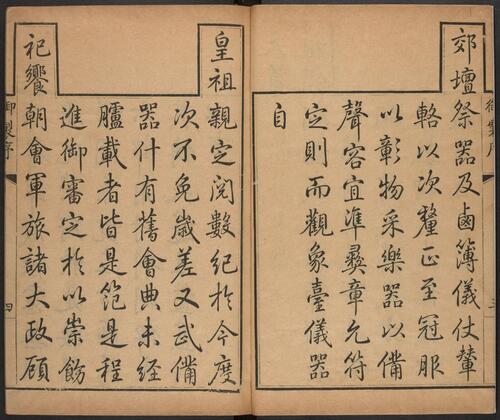 郊壇祭器及鹵簿儀仗輦
輅以次釐正至冠服
以彰物采樂器以備
聲容宜準彝章允符
定則而觀象臺儀器
自
皇祖親定閱數紀於今度
次不免歲差又武備
器什有舊會典未經
臚載者皆是範是程
進御審定於以崇飭
祀饗
朝會軍旅諸大政顧
御製序
四